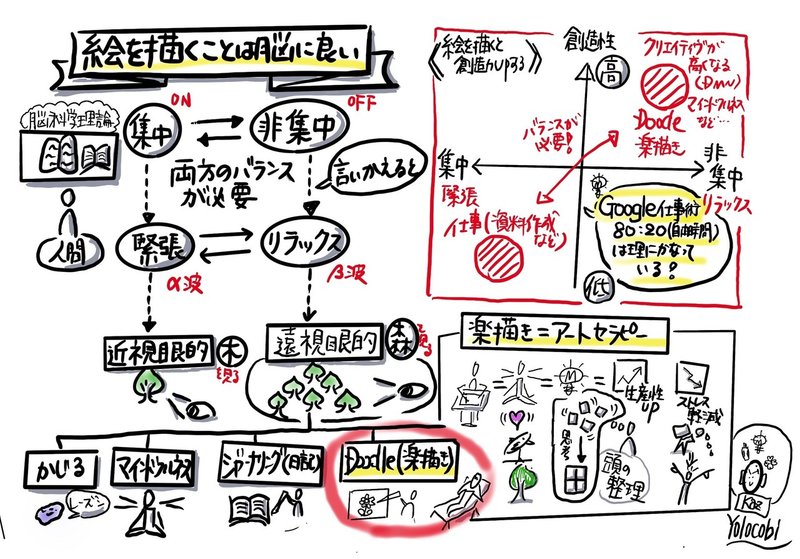 絵を描くことは脳に良い
脳科学理論
人間
ON
集中
OFF
非集中
両方のバランス
が必要
言いかえると
緊張
α波
リラックス
β波
近視眼的
木
を見る
遠視眼的
森
を見る
かじる
レーズン
マインドフルネス
ジャーナリング(日記)
Doodle(楽描き)
《絵を描くと
創造力upする》
創造性
高
クリエイティヴが
高くなる
(DMN)
マインドフルネス
など…
Doodle
楽描き
バランスが
必要!
集中
緊張
仕事(資料作成
など)
非集中
リラックス
Google仕事術
80:20(自由時間)
は理にかなって
いる?
低
楽描き=アートセラピー
生産性
UP
ストレス
軽減
思考
頭の
整理
Kaz
Yolocobi